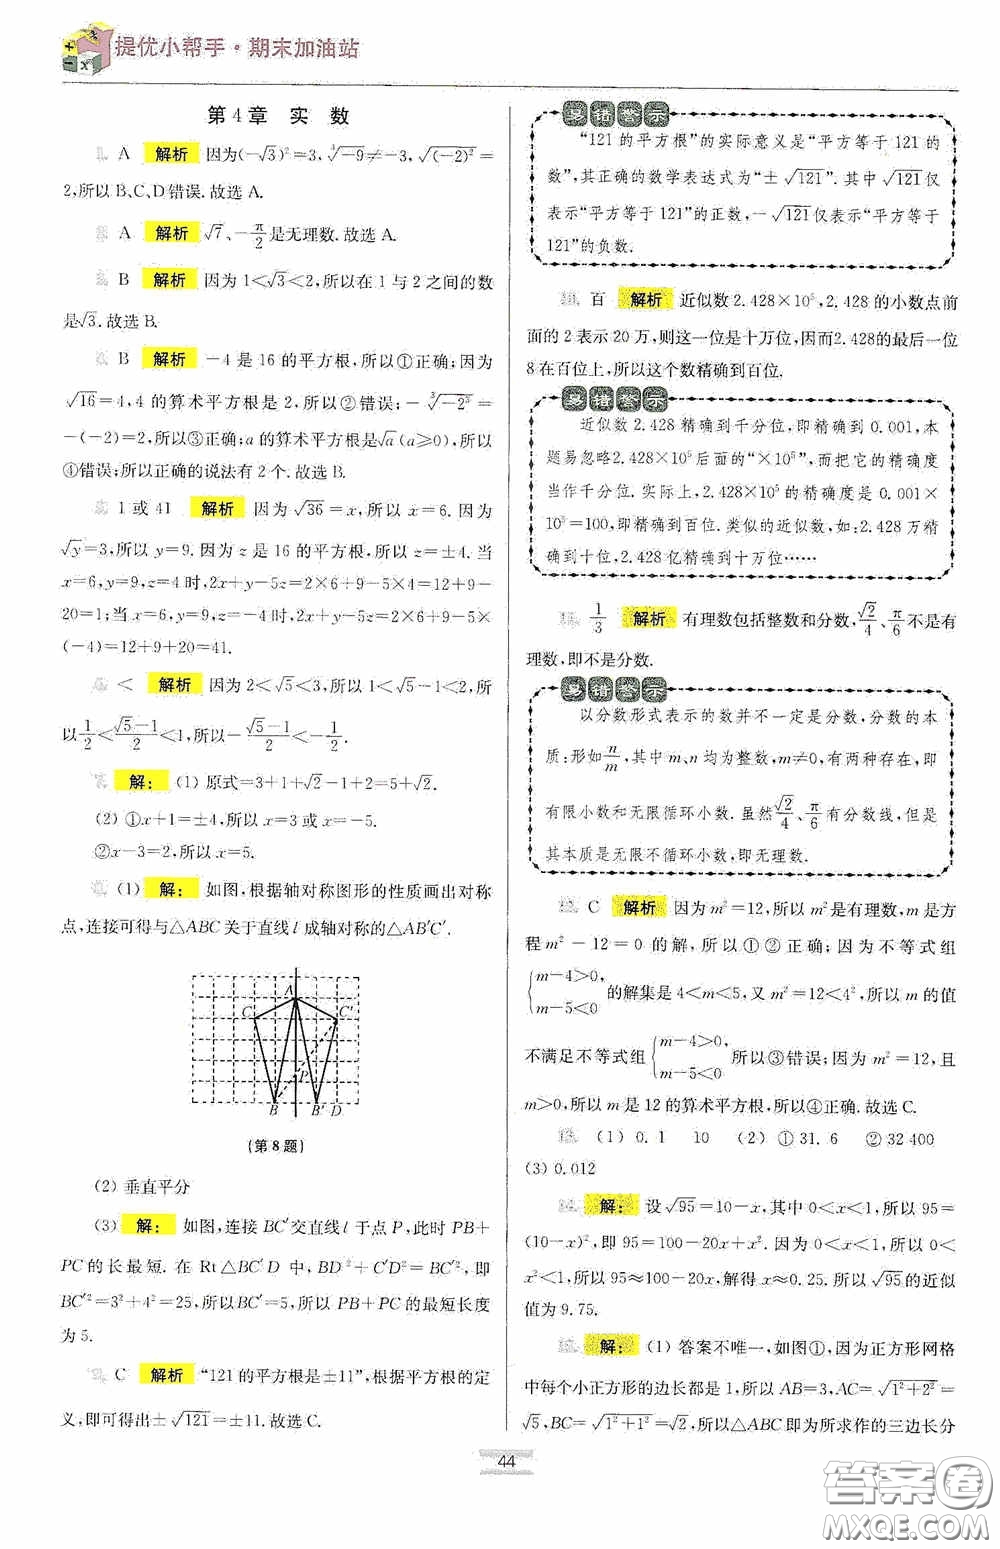 提优小帮手·期末加油站
第4章 实 数
1. A 解析 因为(-√3)²=3,∛-9≠-3,√(-2)²=
2,所以B、C、D错误.故选A.
2. A 解析 √7、-π/2是无理数.故选A.
3. B 解析 因为1<√3<2,所以在1与2之间的数
是√3.故选B.
4. B 解析 -4是16的平方根,所以①正确;因为
√16=4,4的算术平方根是2,所以②错误;-∛-2³=
-(-2)=2,所以③正确;a的算术平方根是√a(a≥0),所以
④错误;所以正确的说法有2个.故选B.
5. 1或41 解析 因为√36=x,所以x=6.因为
√y=3,所以y=9.因为z是16的平方根,所以z=±4.当
x=6,y=9,z=4时,2x+y-5z=2×6+9-5×4=12+9-
20=1;当x=6,y=9,z=-4时,2x+y-5z=2×6+9-5×
(-4)=12+9+20=41.
6. < 解析 因为2<√5<3,所以1<√5-1<2,所
以1/2<(√5-1)/2<1,所以-(√5-1)/2<-1/2.
7. 解: (1) 原式=3+1+√2-1+2=5+√2.
(2) ①x+1=±4,所以x=3或x=-5.
②x-3=2,所以x=5.
8. (1) 解: 如图,根据轴对称图形的性质画出对称
点,连接可得与△ABC关于直线l成轴对称的△AB′C′.
A
C C′
P
B B′ D
(第8题)
(2) 垂直平分
(3) 解: 如图,连接BC′交直线l于点P,此时PB+
PC的长最短.在Rt△BC′D中,BD²+C′D²=BC′²,即
BC′²=3²+4²=25,所以BC′=5,所以PB+PC的最短长度
为5.
9. C 解析 “121的平方根是±11”,根据平方根的定
义,即可得出±√121=±11.故选C.
易错警示
“121的平方根”的实际意义是“平方等于121的
数”,其正确的数学表达式为“±√121”.其中√121仅
表示“平方等于121”的正数,-√121仅表示“平方等于
121”的负数.
10. 百 解析 近似数2.428×10⁵,2.428的小数点前
面的2表示20万,则这一位是十万位,因而2.428的最后一位
8在百位上,所以这个数精确到百位.
易错警示
近似数2.428精确到千分位,即精确到0.001,本
题易忽略2.428×10⁵后面的“×10⁵”,而把它的精确度
当作千分位.实际上,2.428×10⁵的精确度是0.001×
10⁵=100,即精确到百位.类似的近似数,如:2.428万精
确到十位,2.428亿精确到十万位……
11. 1/3 解析 有理数包括整数和分数,√2/4、π/6不是有
理数,即不是分数.
易错警示
以分数形式表示的数并不一定是分数,分数的本
质:形如n/m,其中m、n均为整数,m≠0,有两种存在,即
有限小数和无限循环小数.虽然√2/4、π/6有分数线,但是
其本质是无限不循环小数,即无理数.
12. C 解析 因为m²=12,所以m²是有理数,m是方
程m²-12=0的解,所以①②正确;因为不等式组
{m-4>0,
m-5<0的解集是4<m<5,又m²=12<4²,所以m的值
不满足不等式组{m-4>0,m-5<0所以③错误;因为m²=12,且
m>0,所以m是12的算术平方根,所以④正确.故选C.
13. (1) 0.1 10 (2) ①31.6 ②32 400
(3) 0.012
14. 解: 设√95=10-x,其中0<x<1,所以95=
(10-x)²,即95=100-20x+x².因为0<x<1,所以0<
x²<1,所以95≈100-20x,解得x≈0.25.所以√95的近似
值为9.75.
15. 解: (1) 答案不唯一,如图①,因为正方形网格
中每个小正方形的边长都是1,所以AB=3,AC=√1²+2²=
√5,BC=√1²+1²=√2,所以△ABC即为所求作的三边长分
44
答案圈
MXQE.COM